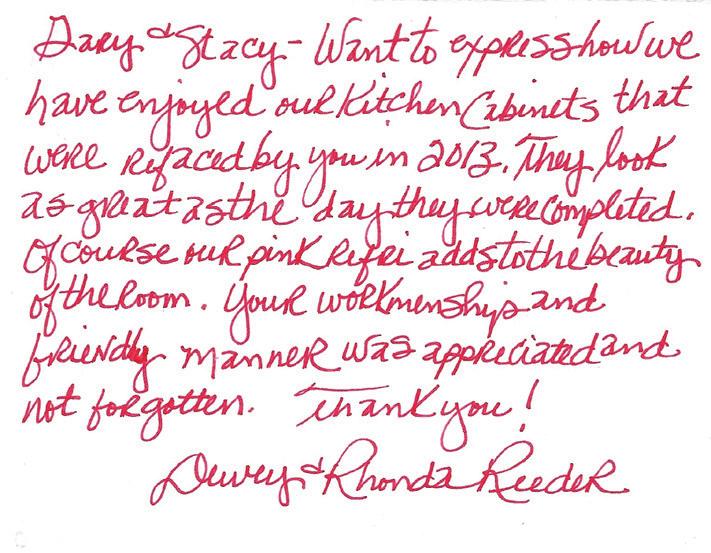 Gary & Stacy - Want to express how we
have enjoyed our Kitchen Cabinets that
were refaced by you in 2013. They look
as great as the day they were completed.
Of course our pink refri adds to the beauty
of the room. Your workmenship and
friendly manner was appreciated and
not forgotten. Thank you!
Dewey & Rhonda Reeder